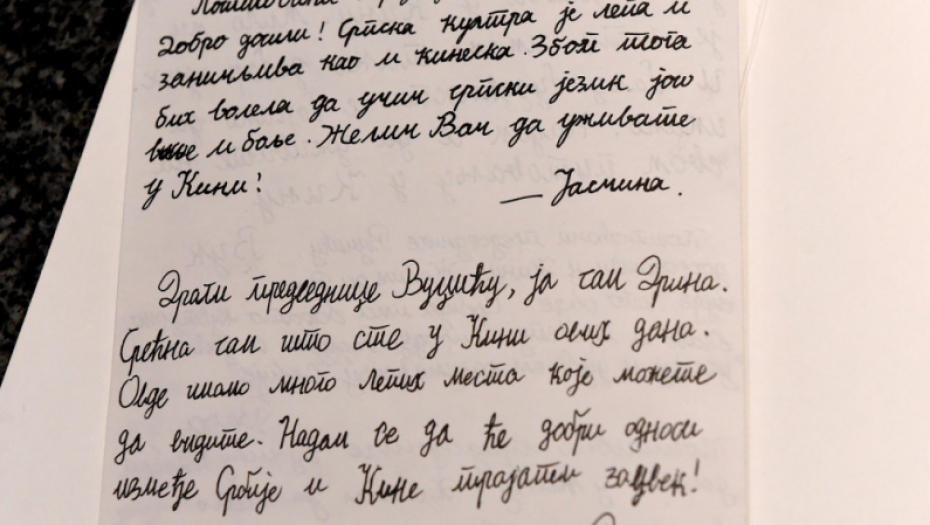 Добро дошли! Српска култра је лепа и
занимљива као и кинеска. Због тога
бих волела да учим српски језик још
више и боље. Желим Вам да уживате
у Кини!
— Јасмина.
Драги председниче Вучићу, ја сам Дрина.
Срећна сам што сте у Кини ових дана.
Овде имамо много лепих места које можете
да видите. Надам се да ће добри односи
између Србије и Кине трајати заувек!